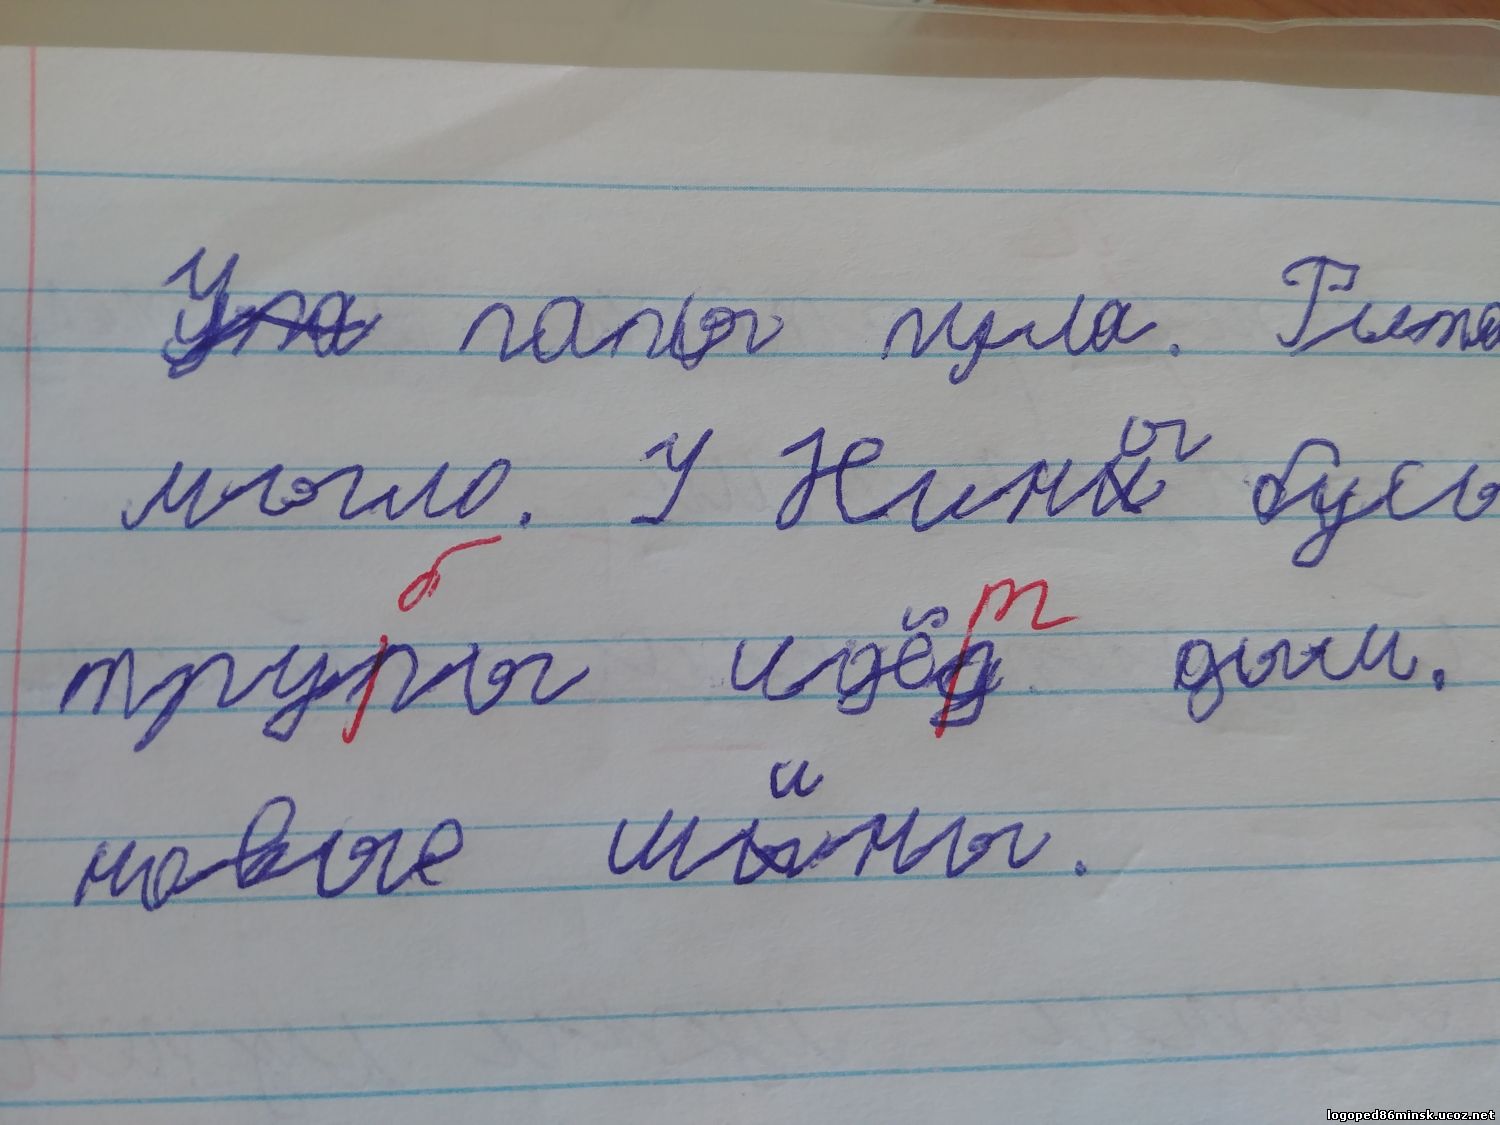 У папы пула. Рита
мыло. У Нины бусы
трупы идёд дым.
б т
новые шины.
logoped86minsk.ucoz.net